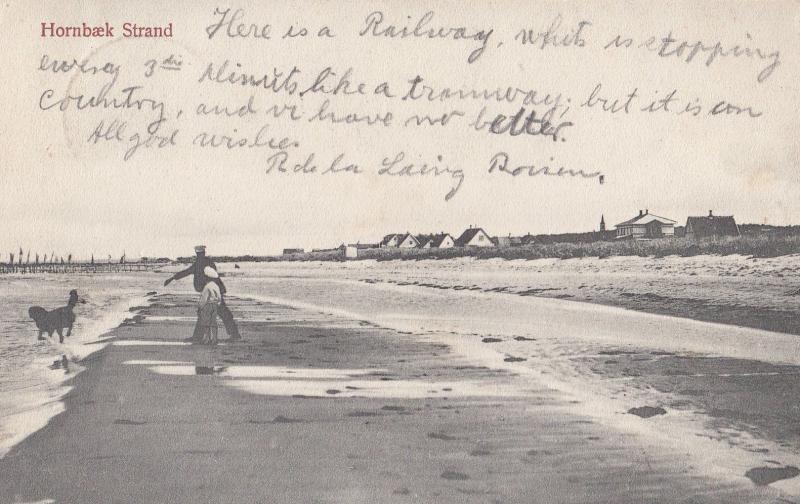 Hornbæk Strand
Here is a Railway, whits is stopping
every 3die Minuts like a tramway; but it is on
Country, and vi have no better.
All god wishes
R de la Laing Boisen.